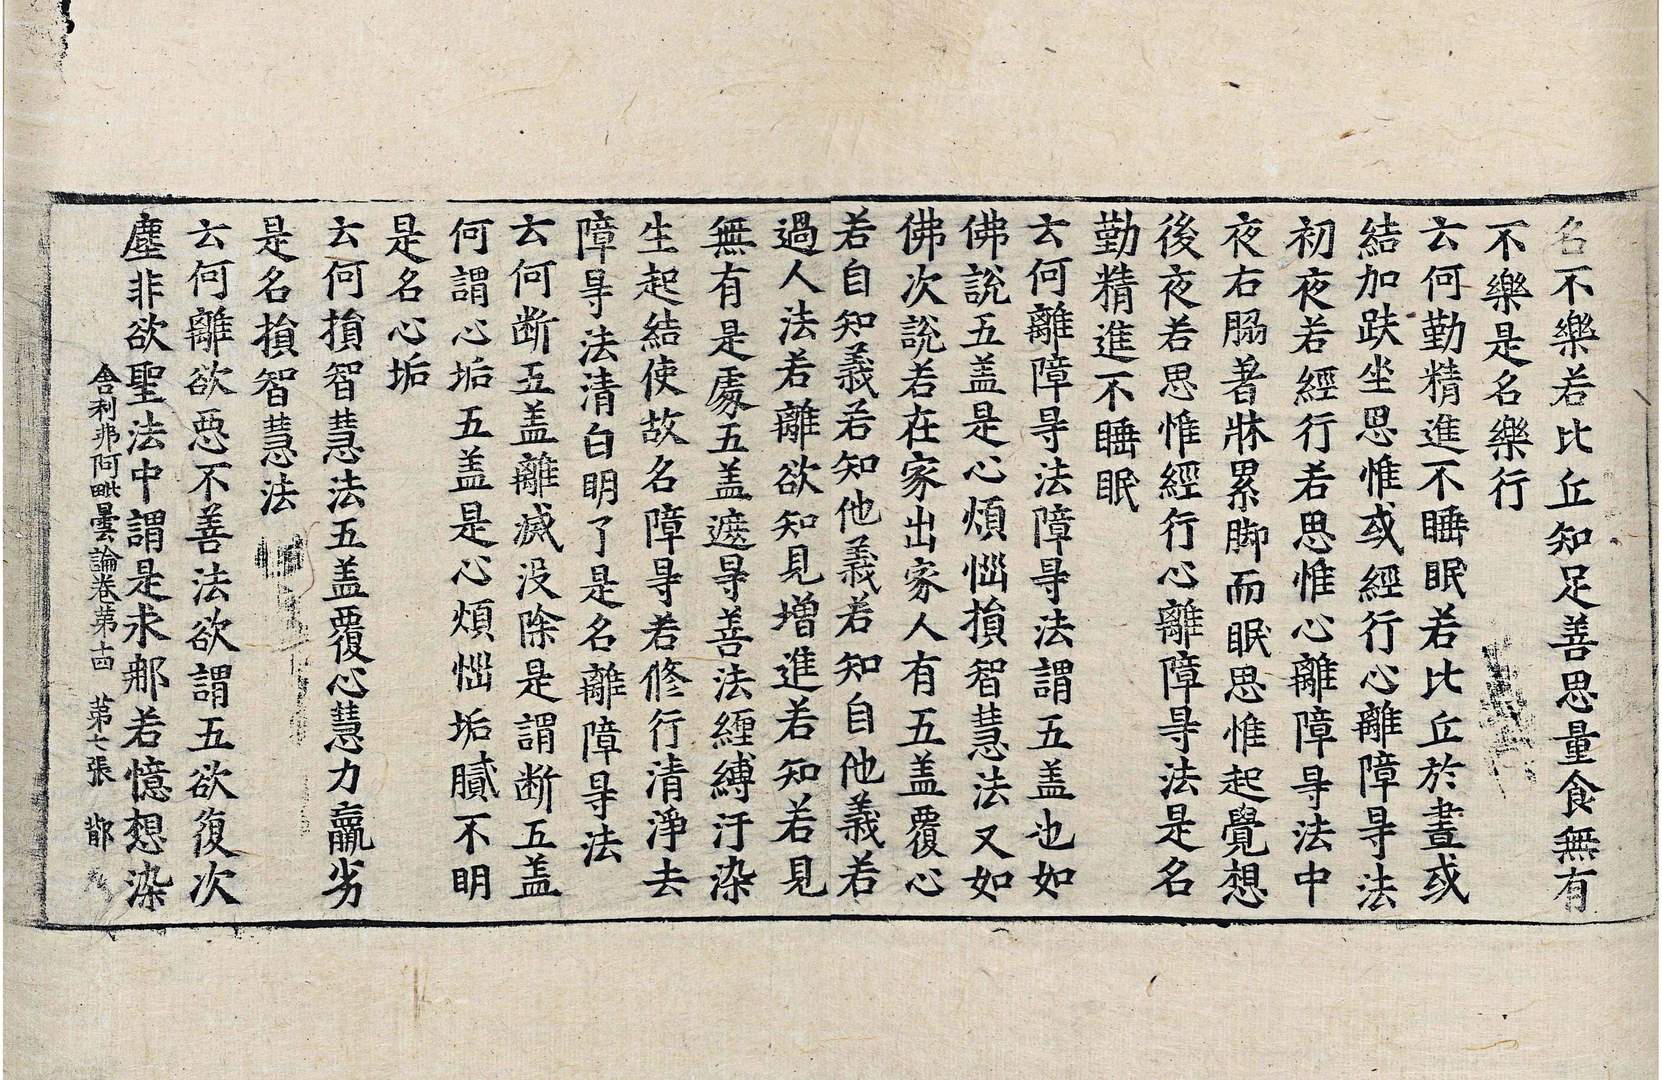 名不樂若比丘知足善思量食無有
不樂是名樂行
云何勤精進不睡眠若比丘於晝或
結加趺坐思惟或經行心離障㝵法
初夜若經行若思惟心離障㝵法中
夜右脇著牀累脚而眠思惟起覺想
後夜若思惟經行心離障㝵法是名
勤精進不睡眠
云何離障㝵法障㝵法謂五盖也如
佛說五盖是心煩惱損智慧法又如
佛次說若在家出家人有五盖覆心
若自知義若知他義若知自他義若
過人法若離欲知見增進若知若見
無有是處五盖遮㝵善法纏縛汙染
生起結使故名障㝵若修行清淨去
障㝵法清白明了是名離障㝵法
云何斷五盖離滅没除是謂斷五盖
何謂心垢五盖是心煩惱垢膩不明
是名心垢
云何損智慧法五盖覆心慧力羸劣
是名損智慧法
云何離欲惡不善法欲謂五欲復次
塵非欲聖法中謂是求那若憶想染
舍利弗阿毗曇論卷第十四 第七張 鄁